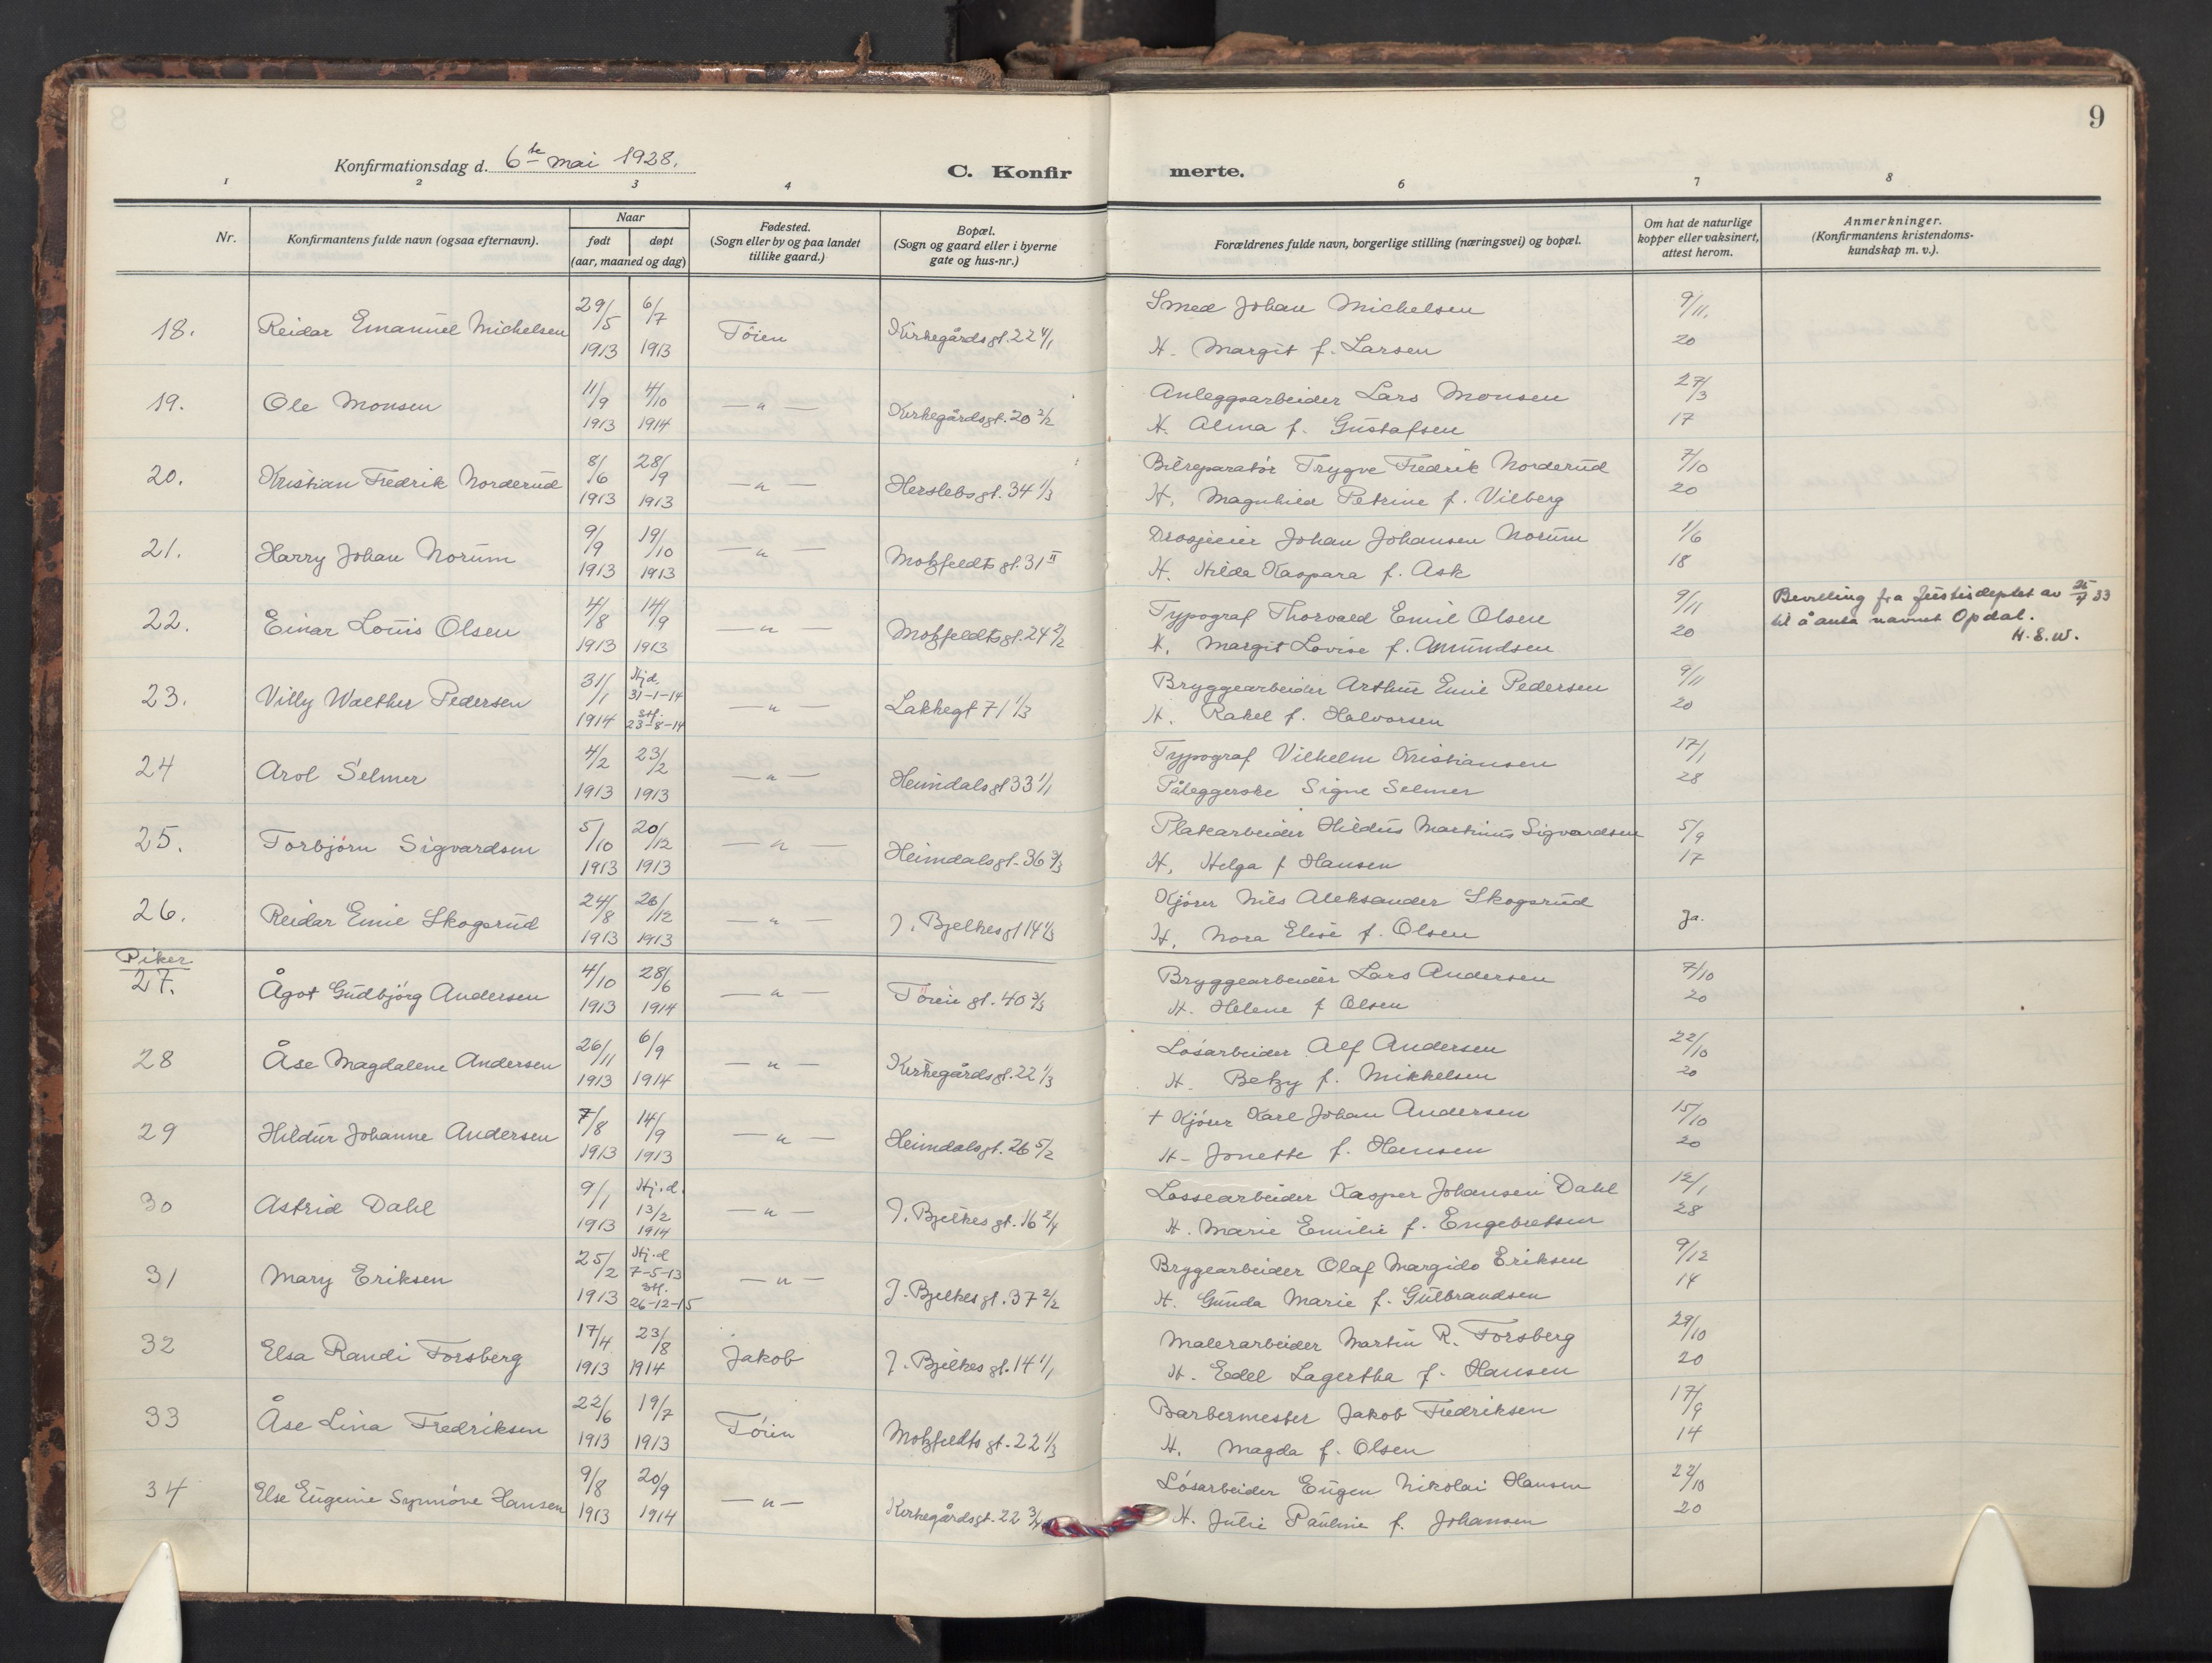 9
Konfirmationsdag d. 6te mai 1928.
C. Konfirmerte.
1 2 3 4 6 7 8
Nr.
Konfirmantens fulde navn (ogsaa efternavn).
Naar
født døpt
(aar, maaned og dag)
Fødested.
(Sogn eller by og paa landet
tillike gaard.)
Bopæl.
(Sogn og gaard eller i byerne
gate og hus-nr.)
Forældrenes fulde navn, borgerlige stilling (næringsvei) og bopæl.
Om hat de naturlige
kopper eller vaksinert,
attest herom.
Anmerkninger.
(Konfirmantens kristendoms-
kundskap m. v.).
18. Reidar Emanuel Michelsen 29/5 1913 6/7 1913 Töien Kirkegårdsgt. 22 4/1 Smed Johan Michelsen 9/11.
H. Margit f. Larsen 20
19. Ole Monsen 11/9 1913 4/10 1914 —"— Kirkegårdsgt. 20 2/2 Anleggsarbeider Lars Monsen 27/3
H. Alma f. Gustafsen 17
20. Kristian Fredrik Norderud 8/6 1913 28/9 1913 —"— Herslebsgt. 34 1/3 Bilreparatör Trygve Fredrik Norderud 7/10
H. Magnhild Petrine f. Vilberg 20
21. Harry Johan Norum 9/9 1913 19/10 1913 —"— Motzfeldtsgt. 31 II Drosjeeier Johan Johansen Norum 1/6
H. Hilda Kaspara f. Ask 18
22. Einar Louis Olsen 4/8 1913 14/9 1913 —"— Motzfeldtsgt. 24 2/2 Typograf Thorvald Emil Olsen 9/11 Bevilling fra Justisdeptet av 25/4 33
H. Margit Lovise f. Amundsen 20 til å anta navnet Opdal.
H. S. W.
23. Villy Walther Pedersen 31/1 1914 Hj.d. 31-1-14 stf. 23-8-14 —"— Lakkegt 71 1/3 Bryggearbeider Arthur Emil Pedersen 9/11
H. Rakel f. Halvorsen 20
24 Arol Selmer 4/2 1913 23/2 1913 —"— Heimdalsgt 33 1/1 Typograf Vilhelm Kristiansen 17/1
Påleggerske Signe Selmer 28
25. Torbjörn Sigvardsen 5/10 1913 20/12 1913 —"— Heimdalsgt. 36 3/3 Platearbeider Hildus Martinius Sigvardsen 5/9
H. Helga f Hansen 17
26. Reidar Emil Skogsrud 24/8 1913 26/12 1913 —"— J. Bjelkesgt 14 1/3 Kjörer Nils Aleksander Skogsrud Ja.
H. Nora Elise f. Olsen
Piker
27. Ågot Gudbjörg Andersen 4/10 1913 28/6 1914 —"— Töiengt. 40 3/3 Bryggearbeider Lars Andersen 7/10
H. Helene f Olsen 20
28 Åse Magdalene Andersen 26/11 1913 6/9 1914 —"— Kirkegårdsgt. 22 1/3 Lösarbeider Alf Andersen 22/10
H. Betzy f. Mikkelsen 20
29 Hildur Johanne Andersen 7/8 1913 14/9 1913 —"— Heimdalsgt. 26 5/2 + Kjörer Karl Johan Andersen 15/10
H- Jonette f. Hansen 20
30 Astrid Dahl 9/1 1913 Hj.d. 13/2 1914 —"— J. Bjelkesgt. 16 2/4 Lossearbeider Kasper Johansen Dahl 12/1
H. Marie Emilie f. Engebretsen 28
31 Mary Eriksen 25/2 1913 Hj.d 7-5-13 stf. 26-12-15 —"— J. Bjelkesgt. 37 2/2 Bryggearbeider Olaf Margido Eriksen 9/12
H. Gunda Marie f. Gulbrandsen 14
32 Elsa Randi Forsberg 17/4 1913 23/8 1914 Jakob J. Bjelkesgt. 14 1/1 Malerarbeider Martin R. Forsberg 29/10
H. Edel Lagertha f. Hansen 20
33 Åse Lina Fredriksen 22/6 1913 19/7 1913 Töien Motzfeldtsgt. 22 1/3 Barbermester Jakob Fredriksen 17/9
H. Magda f. Olsen 14
34 Else Eugenie Synnöve Hansen 9/8 1913 20/9 1914 —"— Kirkegårdsgt. 22 3/4 Lösarbeider Eugen Nikolai Hansen 22/10
H. Julie Pauline f. Johansen 20